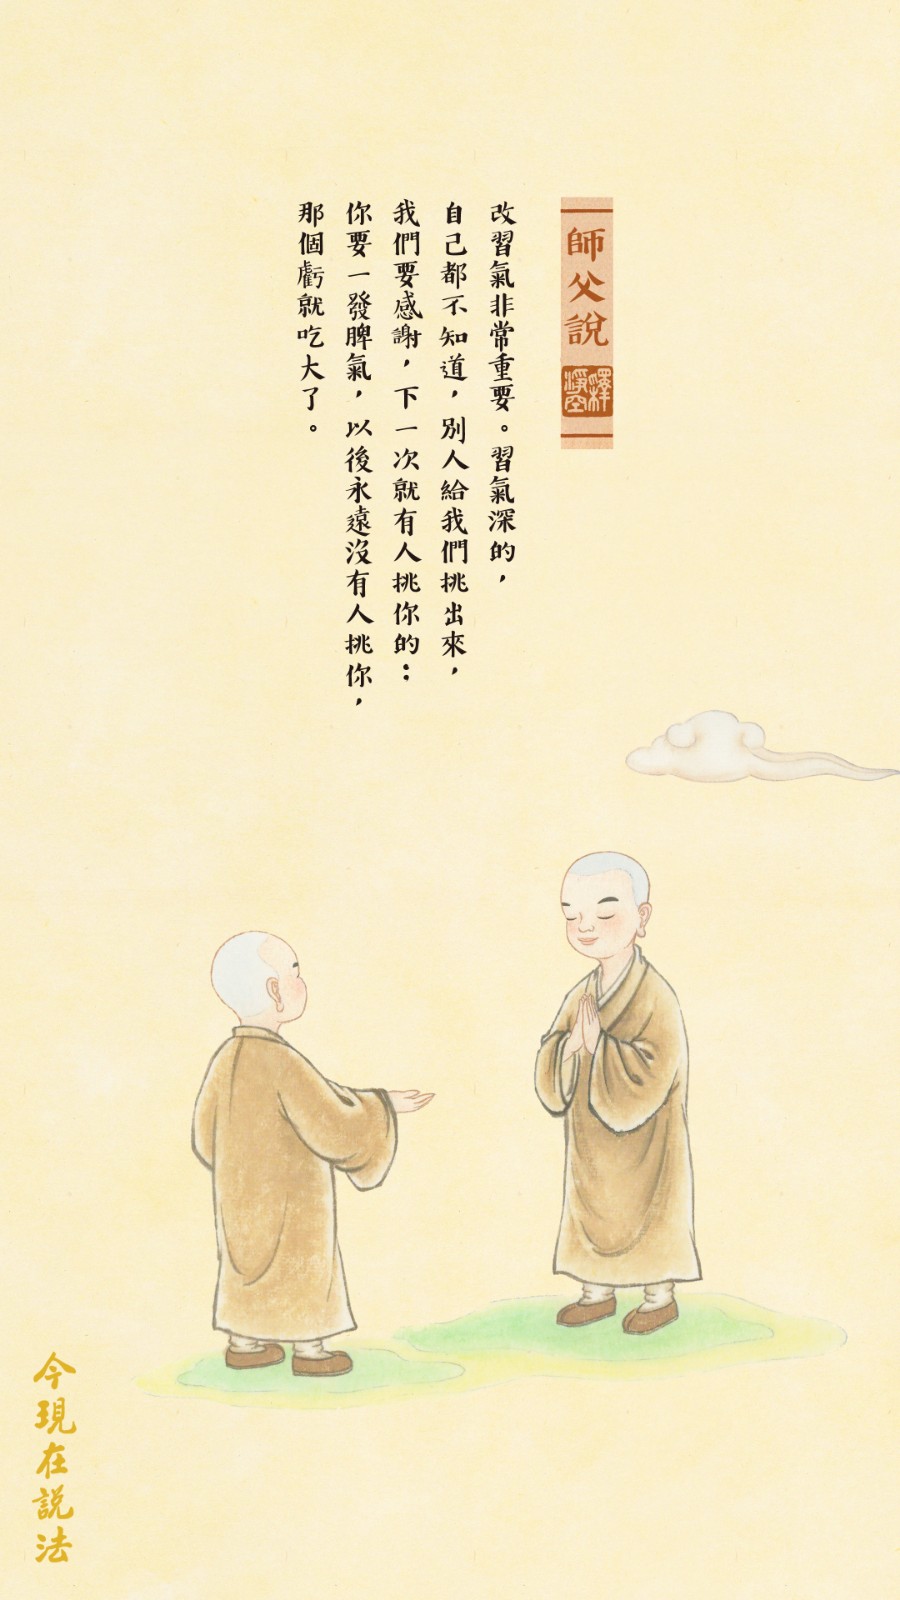 師父說
釋淨空
改習氣非常重要。習氣深的，
自己都不知道，別人給我們挑出來，
我們要感謝，下一次就有人挑你的；
你要一發脾氣，以後永遠沒有人挑你，
那個虧就吃大了。
今現在說法